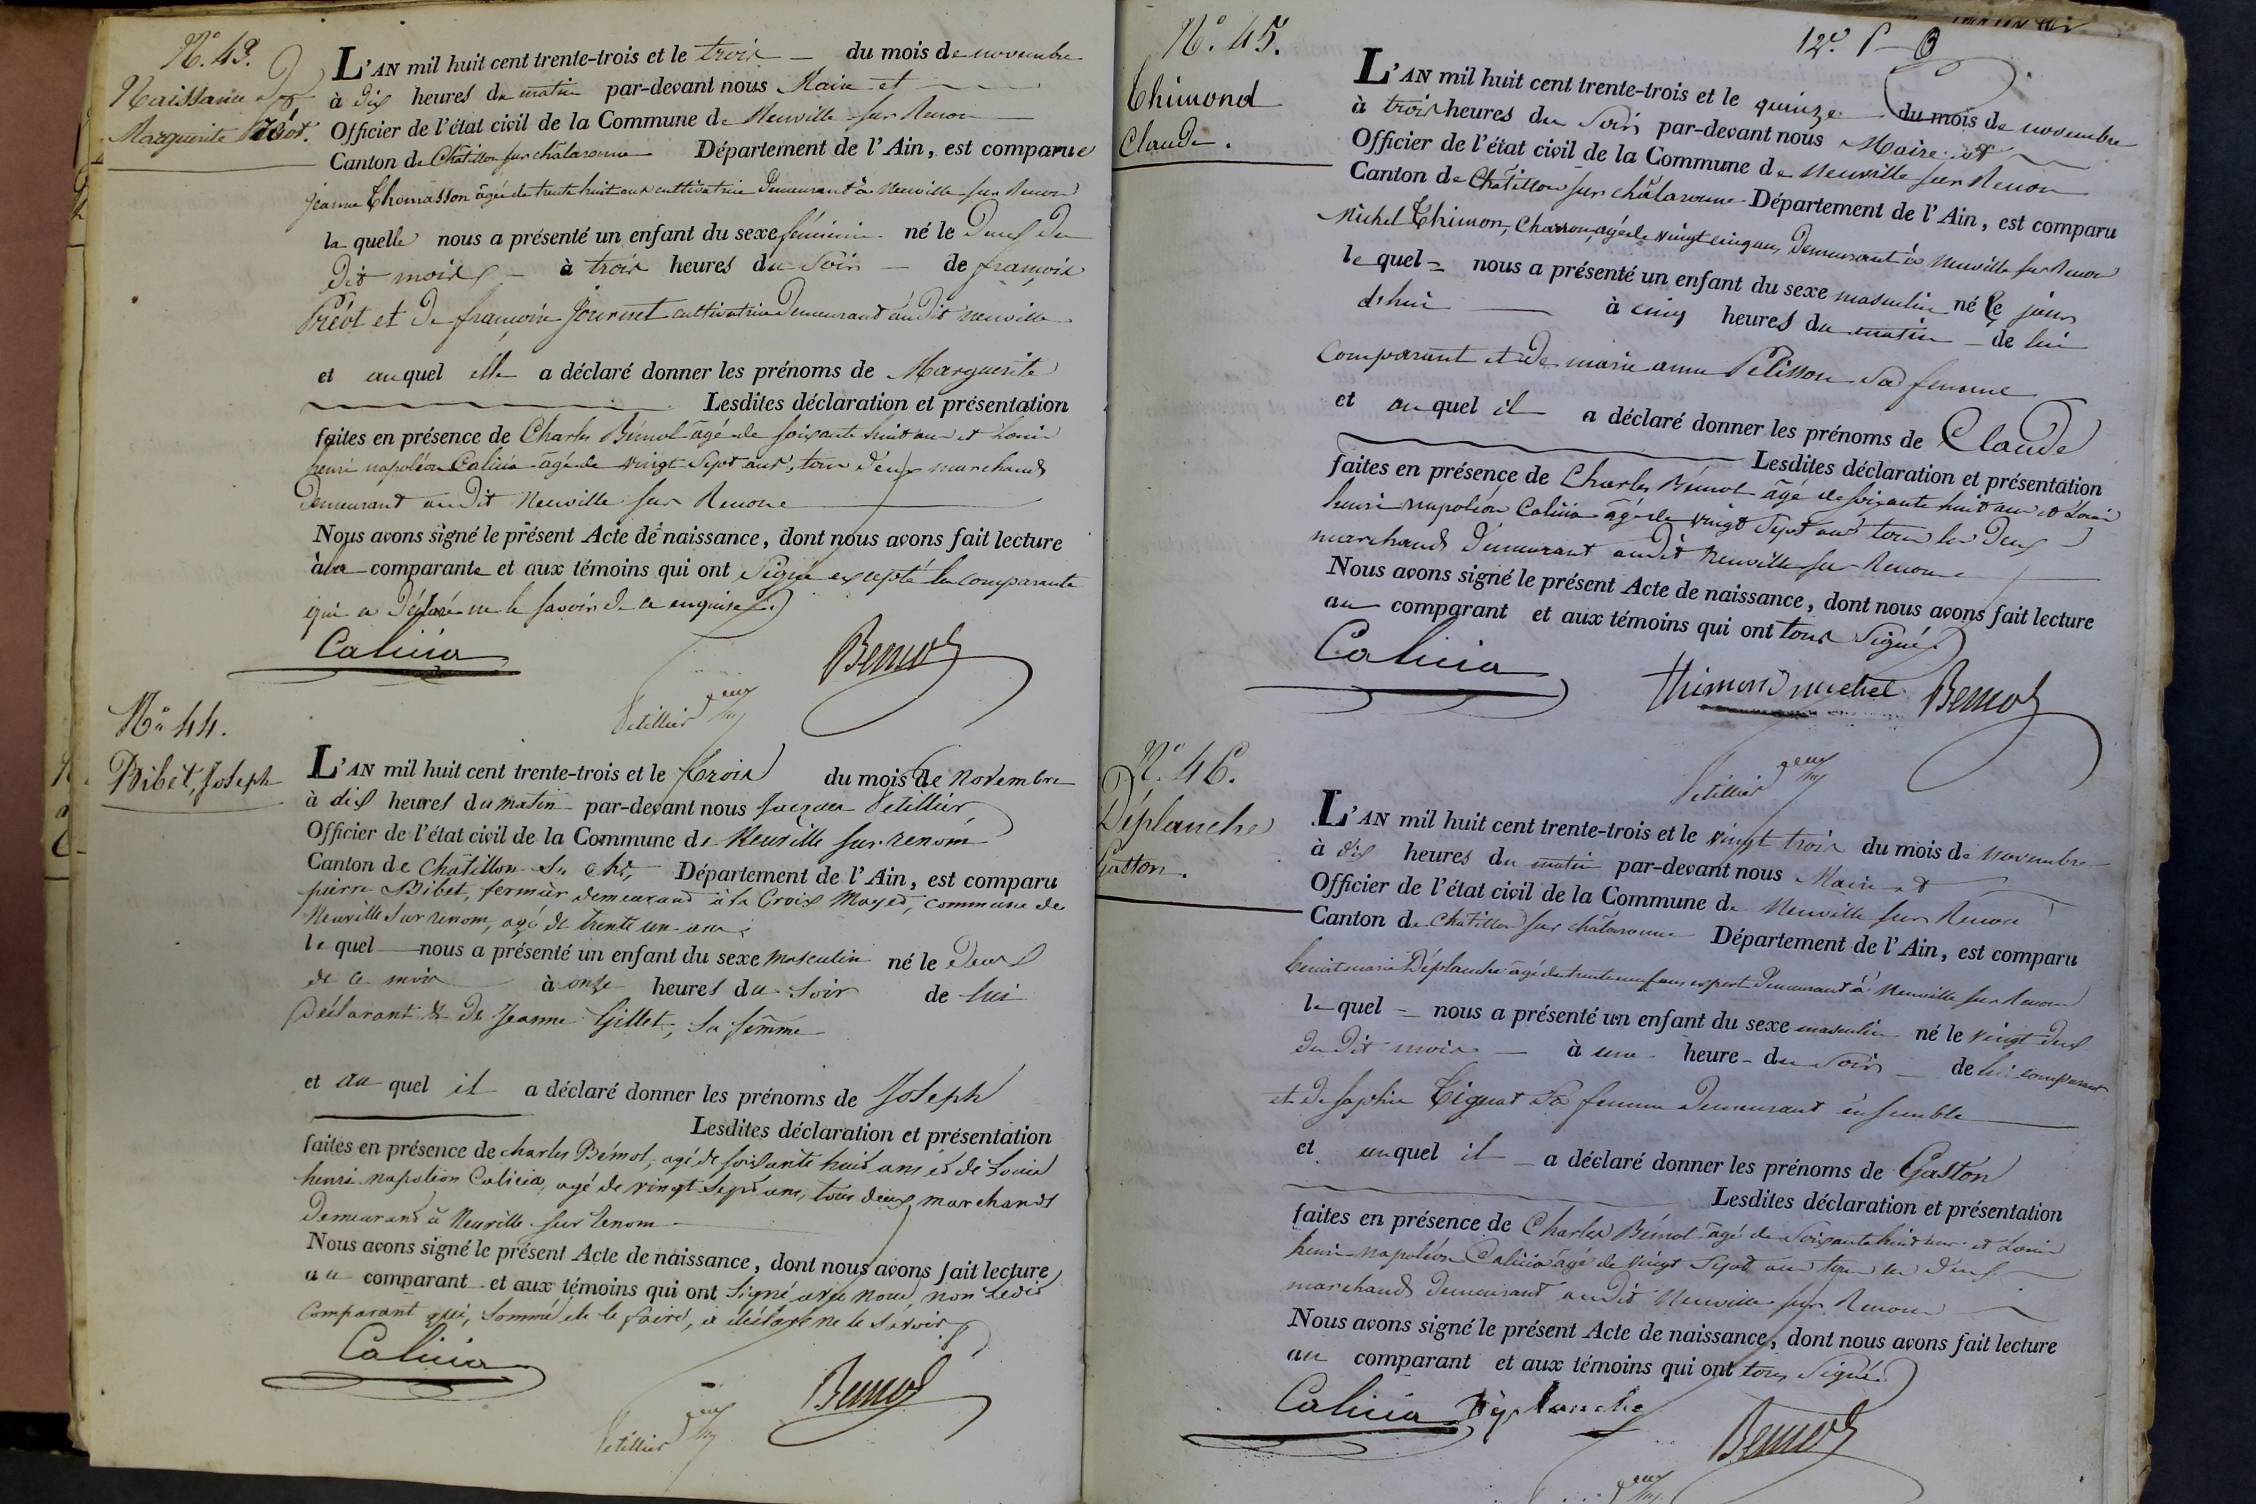 N.° 43.
Naissance de
Marguerite Préot.
L'AN mil huit cent trente-trois et le trois du mois de novembre
à dix heures du matin par-devant nous Maire et
Officier de l'état civil de la Commune de Neuville sur Renon
Canton de Châtillon sur chalaronne Département de l'Ain, est comparue
jeanne Thomasson âgée de trente huit ans cultivatrice Demeurant à Neuville sur Renon
la quelle nous a présenté un enfant du sexe féminin né le Deux du
Dit mois à trois heures du Soir de françois
Préot et De françoise Journet cultivatrice Demeurant audit Neuville
et auquel elle a déclaré donner les prénoms de Marguerite
Lesdites déclaration et présentation
faites en présence de Charles Bémol âgé de soixante huit ans et Louis
henri napoléon Calicia âgé de vingt Sept ans, tous deux marchands
Demeurant audit Neuville sur Renone
Nous avons signé le présent Acte de naissance, dont nous avons fait lecture
à la comparante et aux témoins qui ont Signé excepté la comparante
qui a Déclaré ne le savoir De ce enquise.
Calicia
Bemol
Petillier
N.° 44.
Bibet, Joseph
L'AN mil huit cent trente-trois et le trois du mois de Novembre
à dix heures du matin par-devant nous Jacques Petillier
Officier de l'état civil de la Commune de Neuville sur renom
Canton de Châtillon s. Ch. Département de l'Ain, est comparu
pierre Bibet, fermier demeurand à la Croix Mayet, commune de
Neuville sur renom, agé de trente un ans;
le quel nous a présenté un enfant du sexe masculin né le Deux
de ce mois à onze heures du Soir de lui
Déclarant & de Jeanne Gillet, sa femme
et au quel il a déclaré donner les prénoms de Joseph
Lesdites déclaration et présentation
faites en présence de charles Bémol, agé de soixante huit ans et de Louis
henri napoléon Calicia, agé de vingt sept ans, tous deux marchands
Demeurand à Neuville sur renom
Nous avons signé le présent Acte de naissance, dont nous avons fait lecture
au comparant et aux témoins qui ont signé avec nous, non ledit
Comparant qui, sommé de le faire, a déclaré ne le savoir
Calicia
Bemol
Petillier
12.e
N.° 45.
Thimond
Claude.
L'AN mil huit cent trente-trois et le quinze du mois de novembre
à trois heures du Soir par-devant nous Maire et
Officier de l'état civil de la Commune de Neuville sur Renon
Canton de Châtillon sur châlaronne Département de l'Ain, est comparu
Michel Thimon, Charron, âgé de vingt cinq ans, Demeurant à Neuville sur Renon
le quel nous a présenté un enfant du sexe masculin né ce jour
d'hui à cinq heures du matin de lui
comparant et de marie anne Pelisson sa femme
et au quel il a déclaré donner les prénoms de Claude
Lesdites déclaration et présentation
faites en présence de Charles Bémol âgé de soixante huit ans et Louis
henri napoléon Calicia âgé de vingt Sept ans tous les Deux
marchands Demeurant audit Neuville sur Renone
Nous avons signé le présent Acte de naissance, dont nous avons fait lecture
au comparant et aux témoins qui ont tous Signé.
Calicia
thimond michel
Bemol
Petillier
N.° 46.
Déplanche
Gaston.
L'AN mil huit cent trente-trois et le vingt trois du mois de novembre
à dix heures du matin par-devant nous Maire et
Officier de l'état civil de la Commune de Neuville sur Renon
Canton de Châtillon sur châlaronne Département de l'Ain, est comparu
benoit marie Déplanche âgé de trente neuf ans expert Demeurant à Neuville sur Renon
le quel nous a présenté un enfant du sexe masculin né le vingt deux
du Dit mois à une heure du Soir de lui comparant
et De Sophie Tignat Sa femme Demeurant ensemble
et auquel il a déclaré donner les prénoms de Gaston
Lesdites déclaration et présentation
faites en présence de Charles Bémol âgé de Soixante huit ans et Louis
henri napoléon Calicia âgé de vingt Sept ans tous les Deux
marchands Demeurant audit Neuville sur Renone
Nous avons signé le présent Acte de naissance, dont nous avons fait lecture
au comparant et aux témoins qui ont tous Signé.
Calicia
Déplanche
Bemol